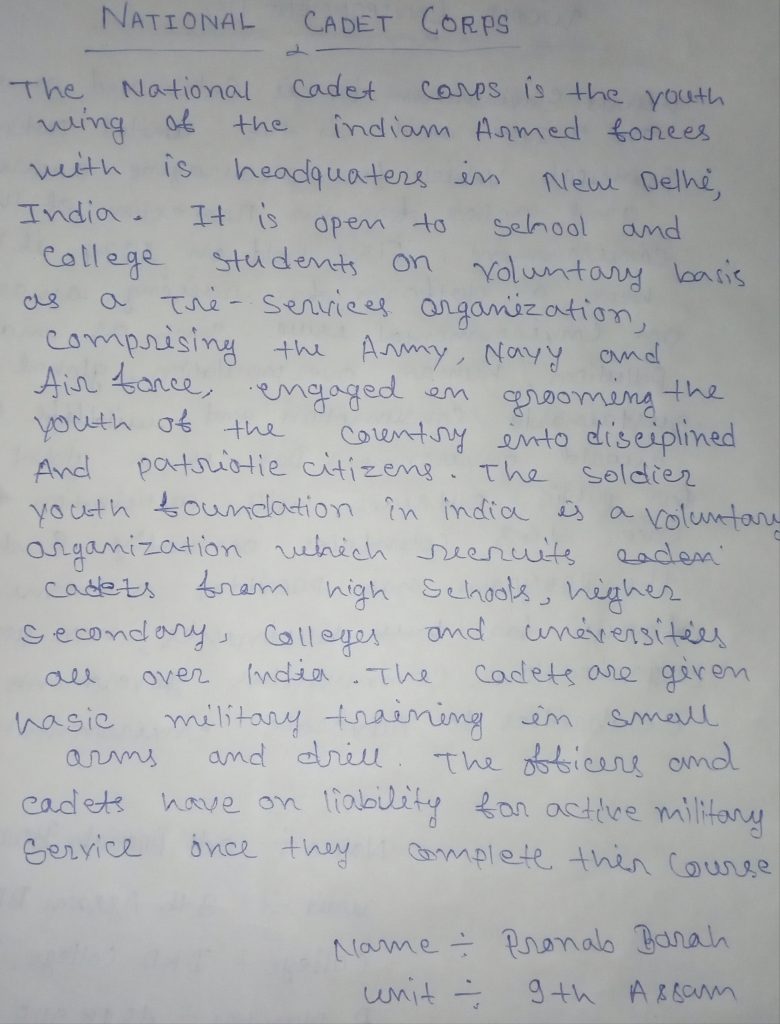 NATIONAL CADET CORPS
The National Cadet Corps is the youth
wing of the indiam Armed forces
with is headquaters in New Delhi,
India. It is open to school and
College students on voluntary basis
as a Tri-Services organization,
Comprising the Army, Navy and
Air force, engaged in grooming the
youth of the country into disciplined
And patriotic citizens. The soldier
youth foundation in india is a voluntary
organization which recruits
cadets from high Schools, higher
Secondary, Colleges and universities
all over India. The cadets are given
basic military training in small
arms and drill. The officers and
cadets have on liability for active military
Service once they complete then Course
Name ÷ Pronab Borah
unit ÷ 9th Assam